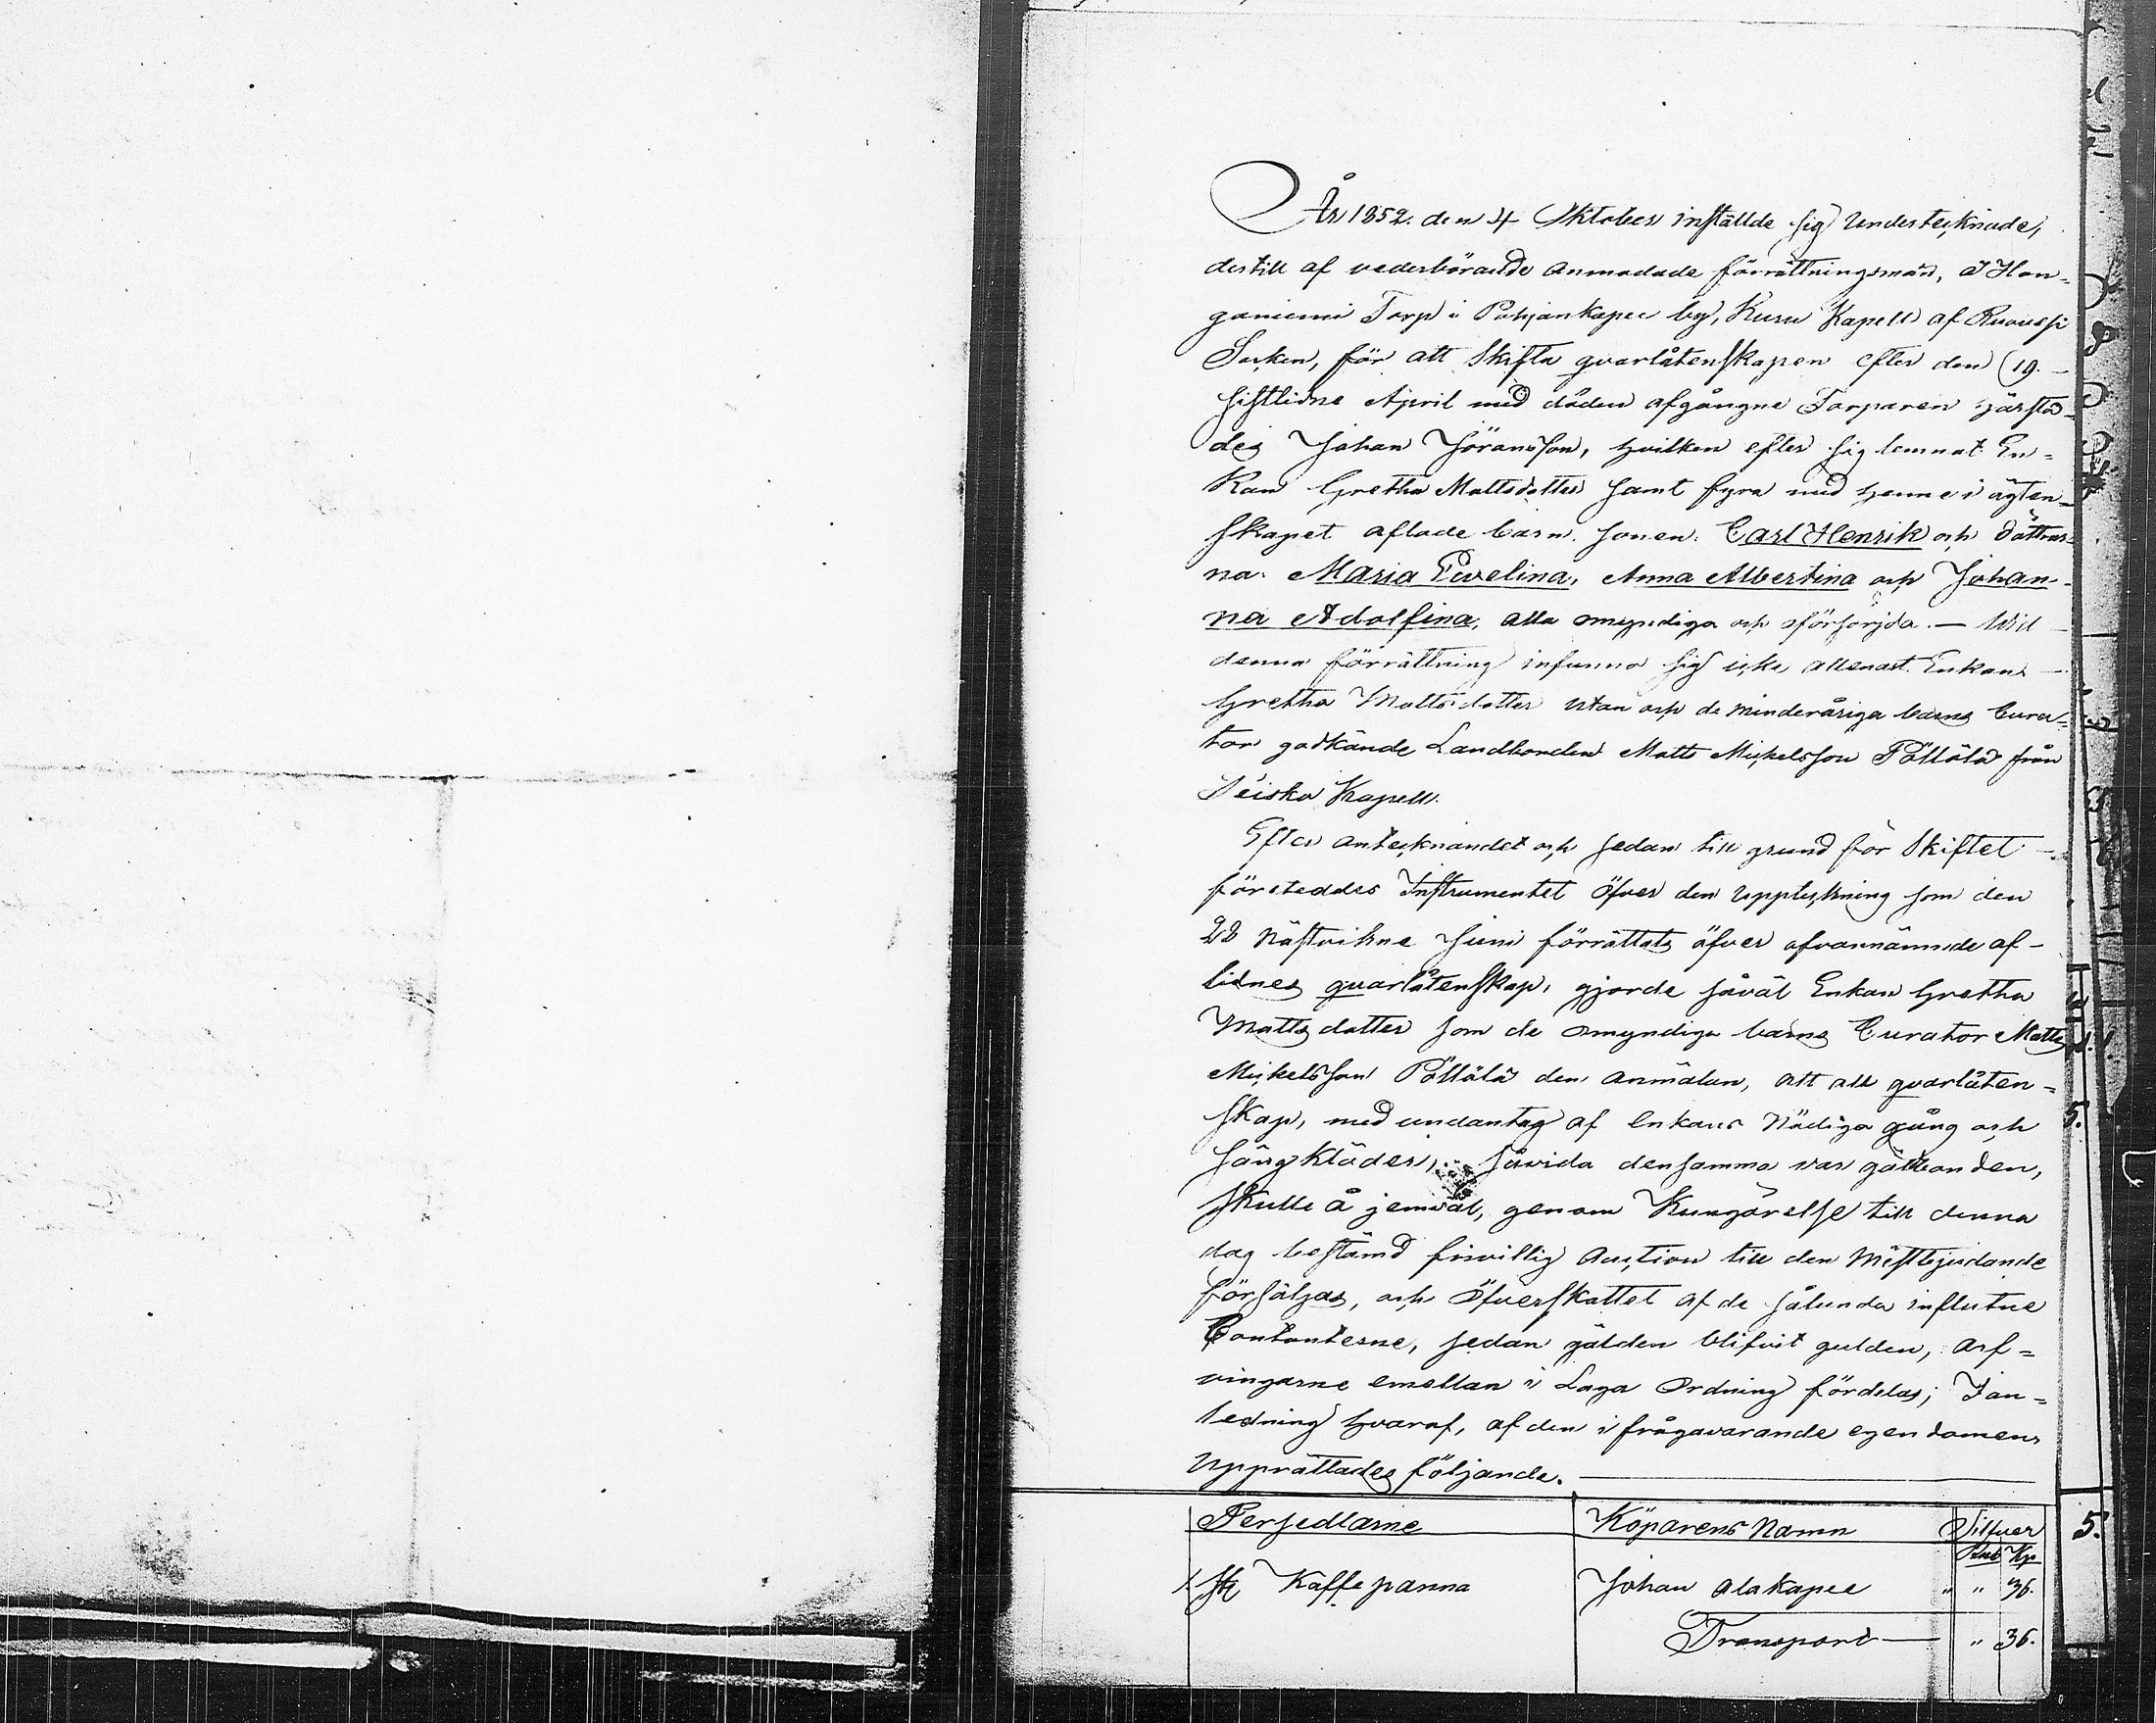 År 1852. den 4 Oktober inställde sig Undertecknade,
dertill af vederbörande anmodade förrättningsmän, å Hon-
ganiemi Torp i Pohjankapee by, Kuru Kapell af Ruovesi
Socken, för att skifta qvarlåtenskapen efter den 19.
sistlidne April med döden afgångne Torparen härstä-
des Johan Jöransson, hvilken efter sig lemnat En-
kan Gretha Mattsdotter samt fyra med henne i ägten-
skapet aflade barn. sonen: Carl Henrik och döttrar-
na: Maria Evelina, Anna Albertina och Johan-
na Adolfina, alla omyndiga och oförsörjda. — Wid
denna förrättning infunno sig icke allenast Enkan
Gretha Mattsdotter utan och de minderåriga barns Cura-
tor godkände Landbonden Matts Mickelsson Pöllälä från
Teisko Kapell.
Efter antecknandet och sedan till grund för skiftet
företeddes Instrumentet öfver den uppteckning som den
22 Nästvikne Juni förrättats öfver ofvannämnde af-
lidnes qvarlåtenskap, gjorde såväl Enkan Gretha
Matts dotter som de omyndiga barns Curator Matts
Mickelsson Pöllälä den anmälan, att all qvarlåten-
skap, med undantag af enkans Nödiga gång och
sängkläder, såvida densamma var gällanden,
skulle å jemväl, genom Kungörelse till denna
dag bestämd frivillig auction till den Mestbjudande
försäljas, och Öfverskottet af de sålunda influtne
Contanterne, sedan gälden blifvit gulden, arf-
vingarne emellan i Laga Ordning fördelas; I an-
ledning hvaraf, af den i frågavarande egendomen
Upprättades följande.
Persedlarne Köparens Namn Silfver
Rub Kp
1. st Kaffe panna Johan Alakapee " " 36.
Transport — " 36.
5.
5.